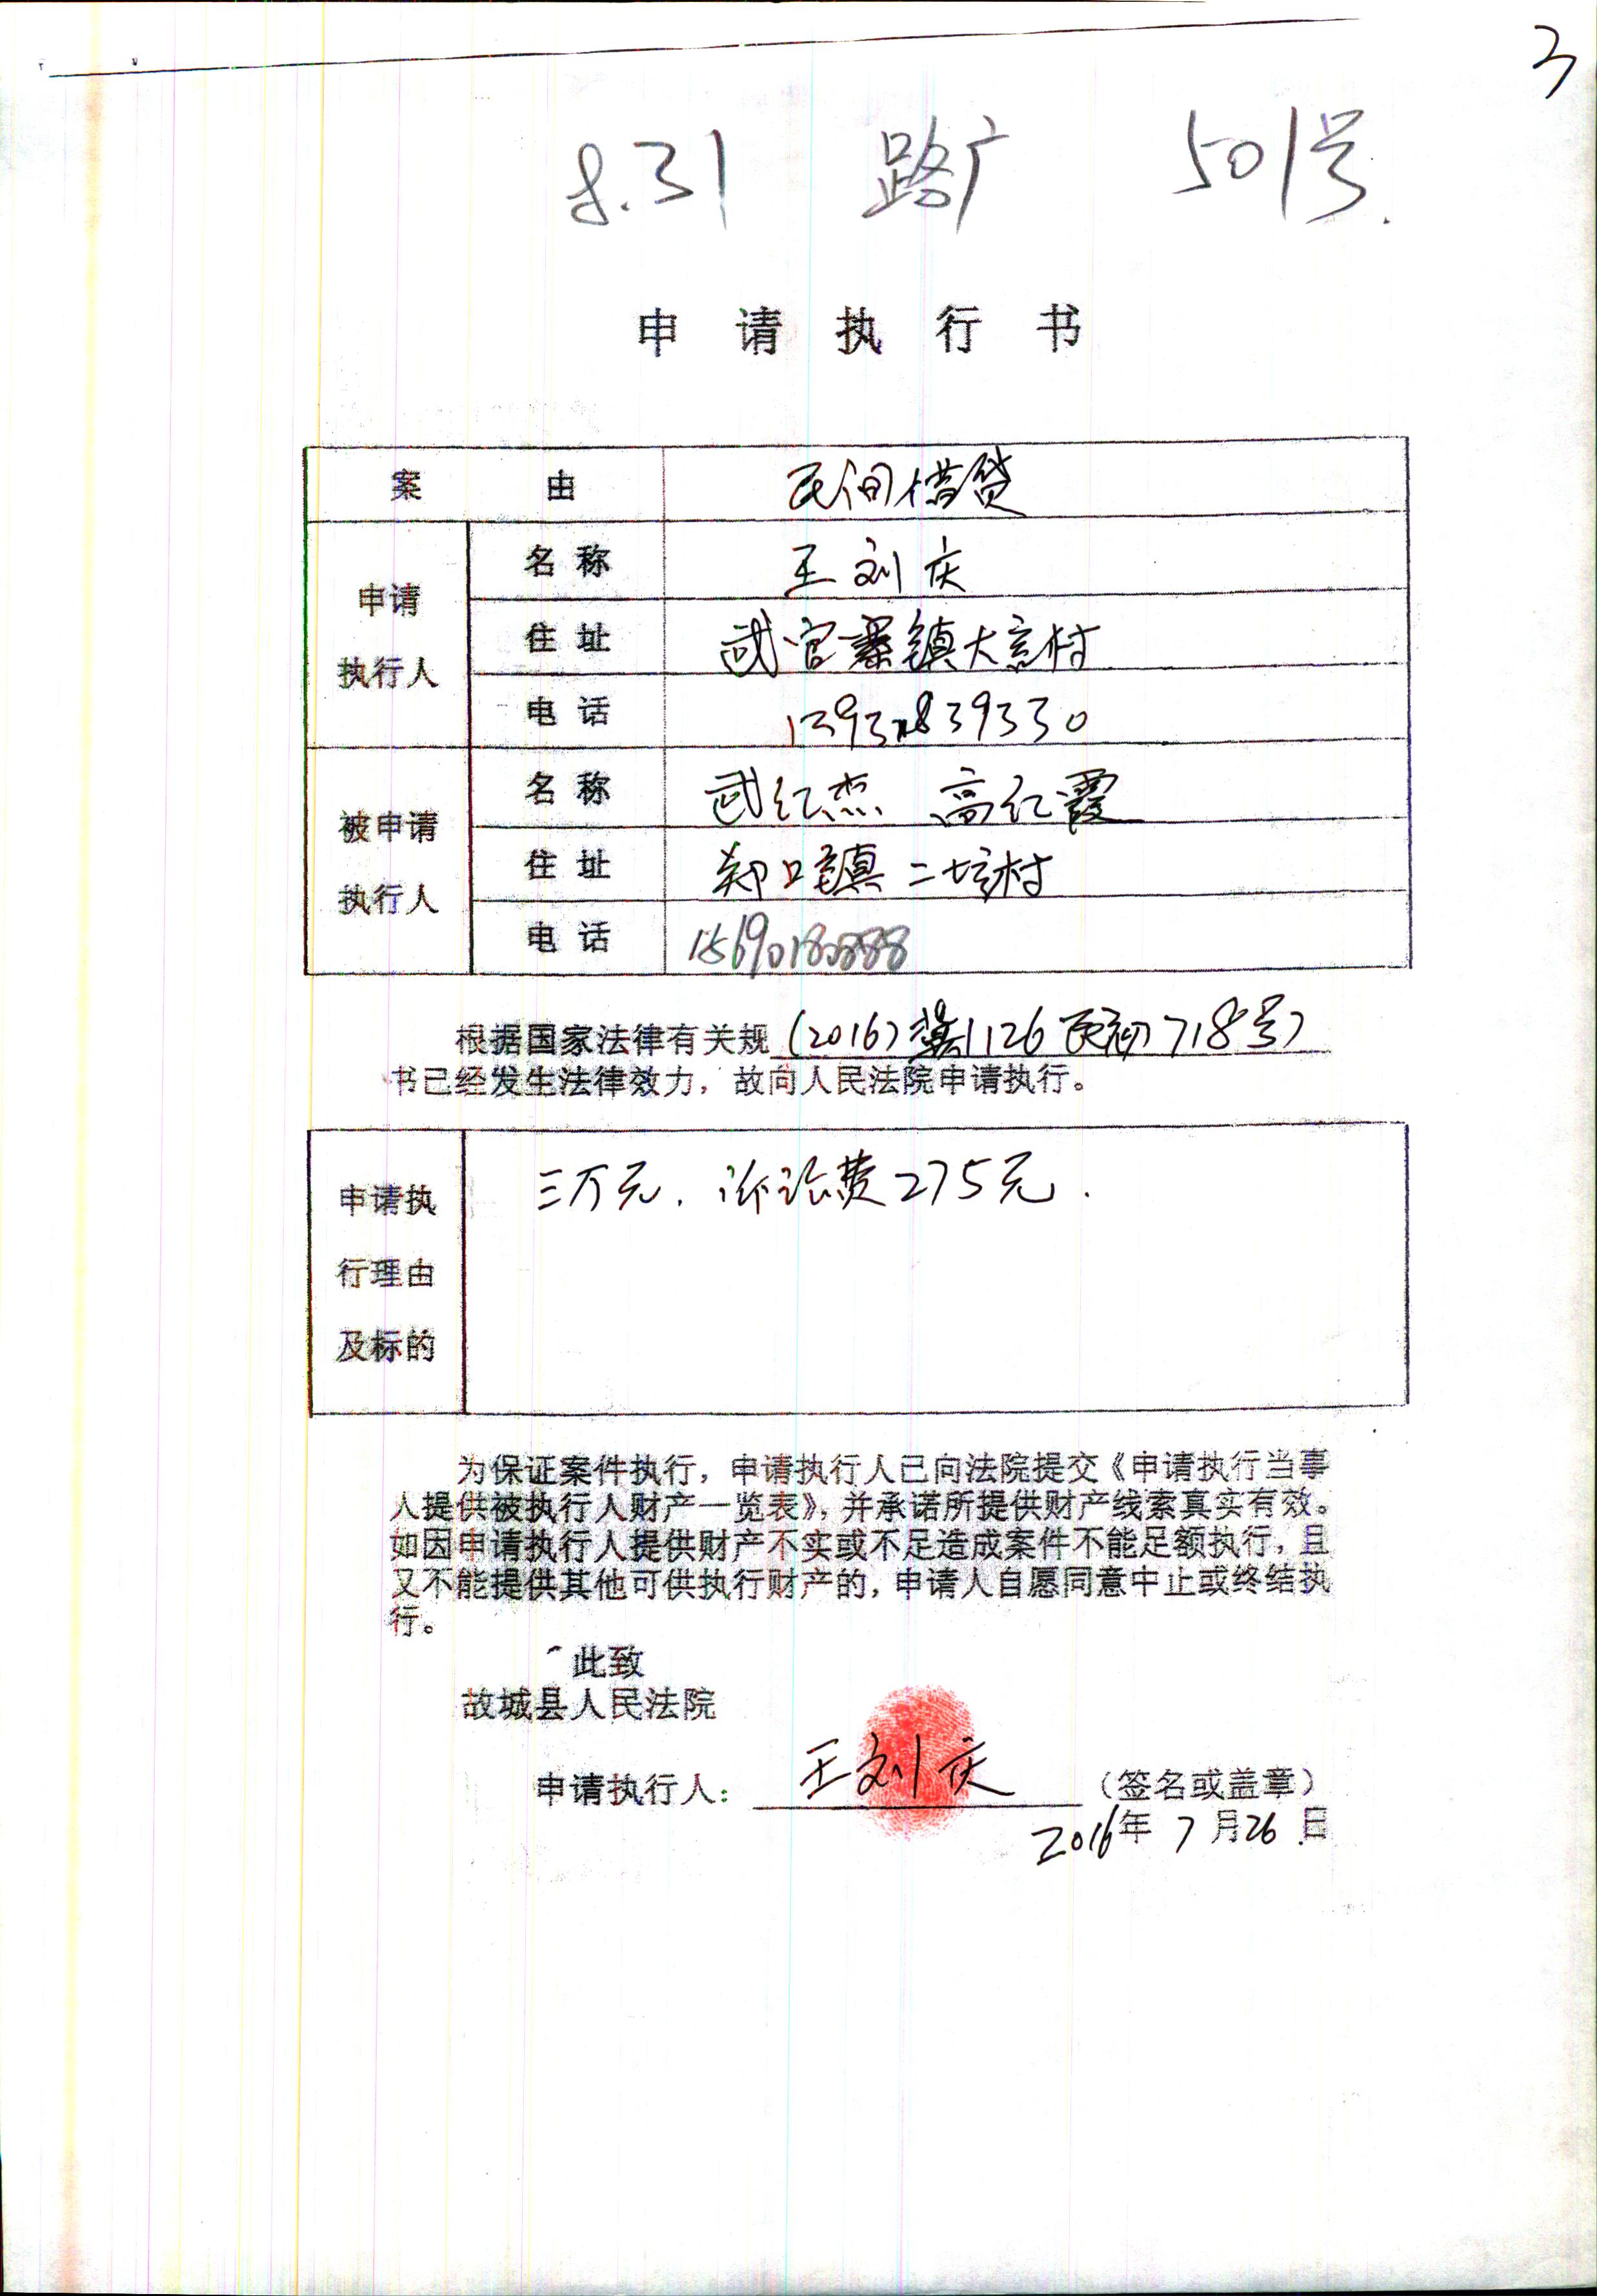 3
8.31 路广 501号.
申请执行书
案由 民间借贷
申请执行人 名称 王刘庆
住址 武官寨镇大京村
电话
被申请执行人 名称 武红杰 高红霞
住址 郑口镇二坊村
电话
根据国家法律有关规(2016)冀1126民初718号)
书已经发生法律效力，故向人民法院申请执行。
申请执行理由及标的 三万元．诉讼费275元．
为保证案件执行，申请执行人已向法院提交《申请执行当事
人提供被执行人财产一览表》，并承诺所提供财产线索真实有效。
如因申请执行人提供财产不实或不足造成案件不能足额执行，且
又不能提供其他可供执行财产的，申请人自愿同意中止或终结执
行。
此致
故城县人民法院
申请执行人：王刘庆（签名或盖章）
2016年7月26日